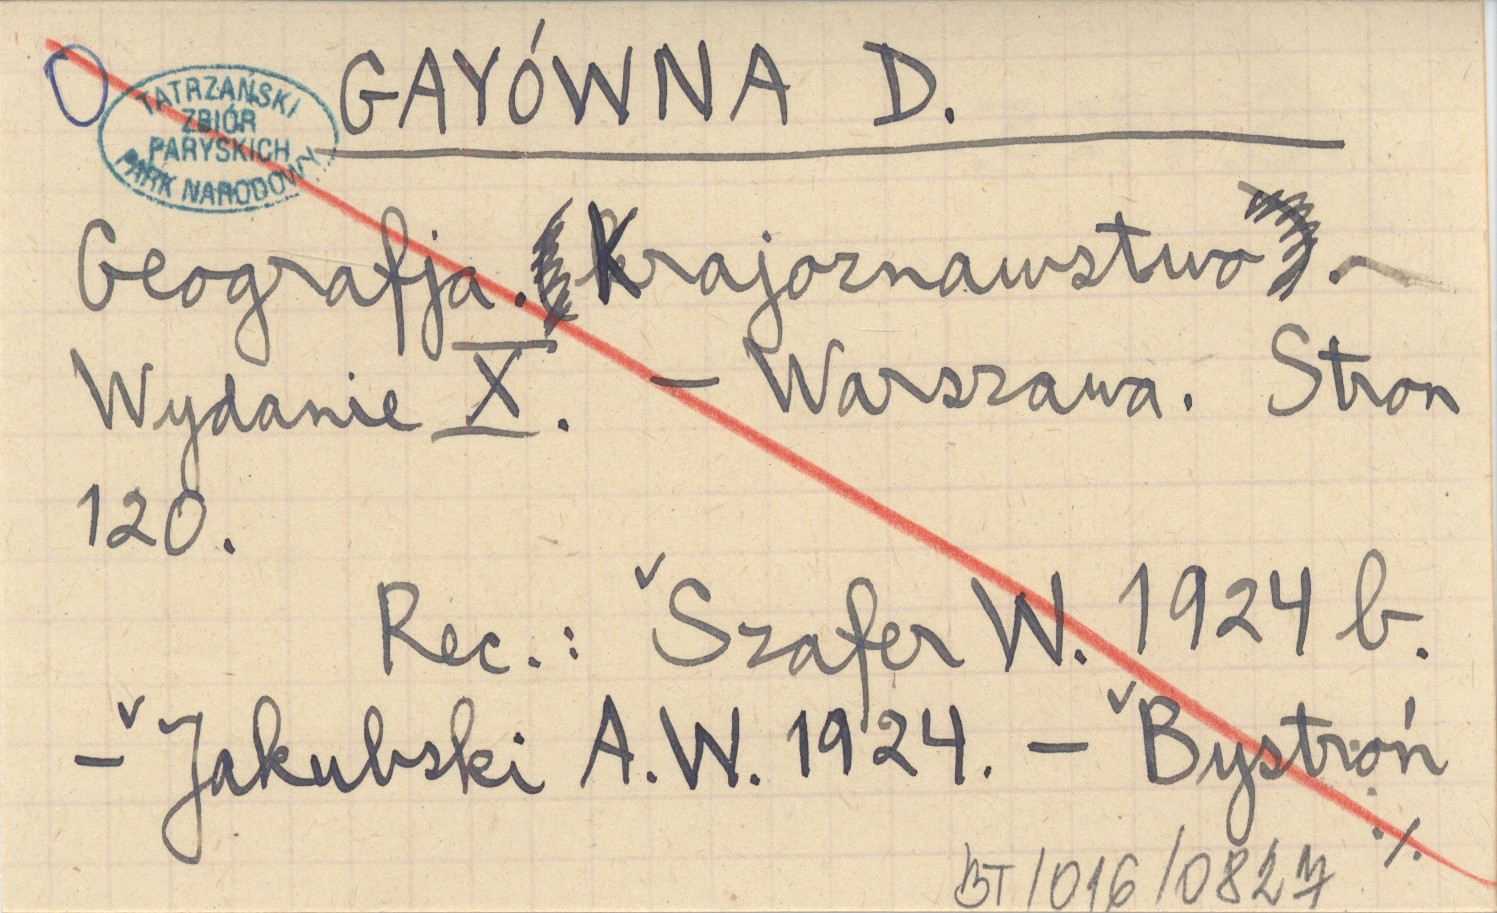 GAYÓWNA D.
TATRZAŃSKI
ZBIÓR
PARYSKICH
PARK NARODOWY
Geografja. Krajoznawstwo.
Wydanie X. – Warszawa. Stron
120.
Rec.: Szafer W. 1924 b.
– Jakubski A.W. 1924. – Bystroń
./.
BT/016/0827